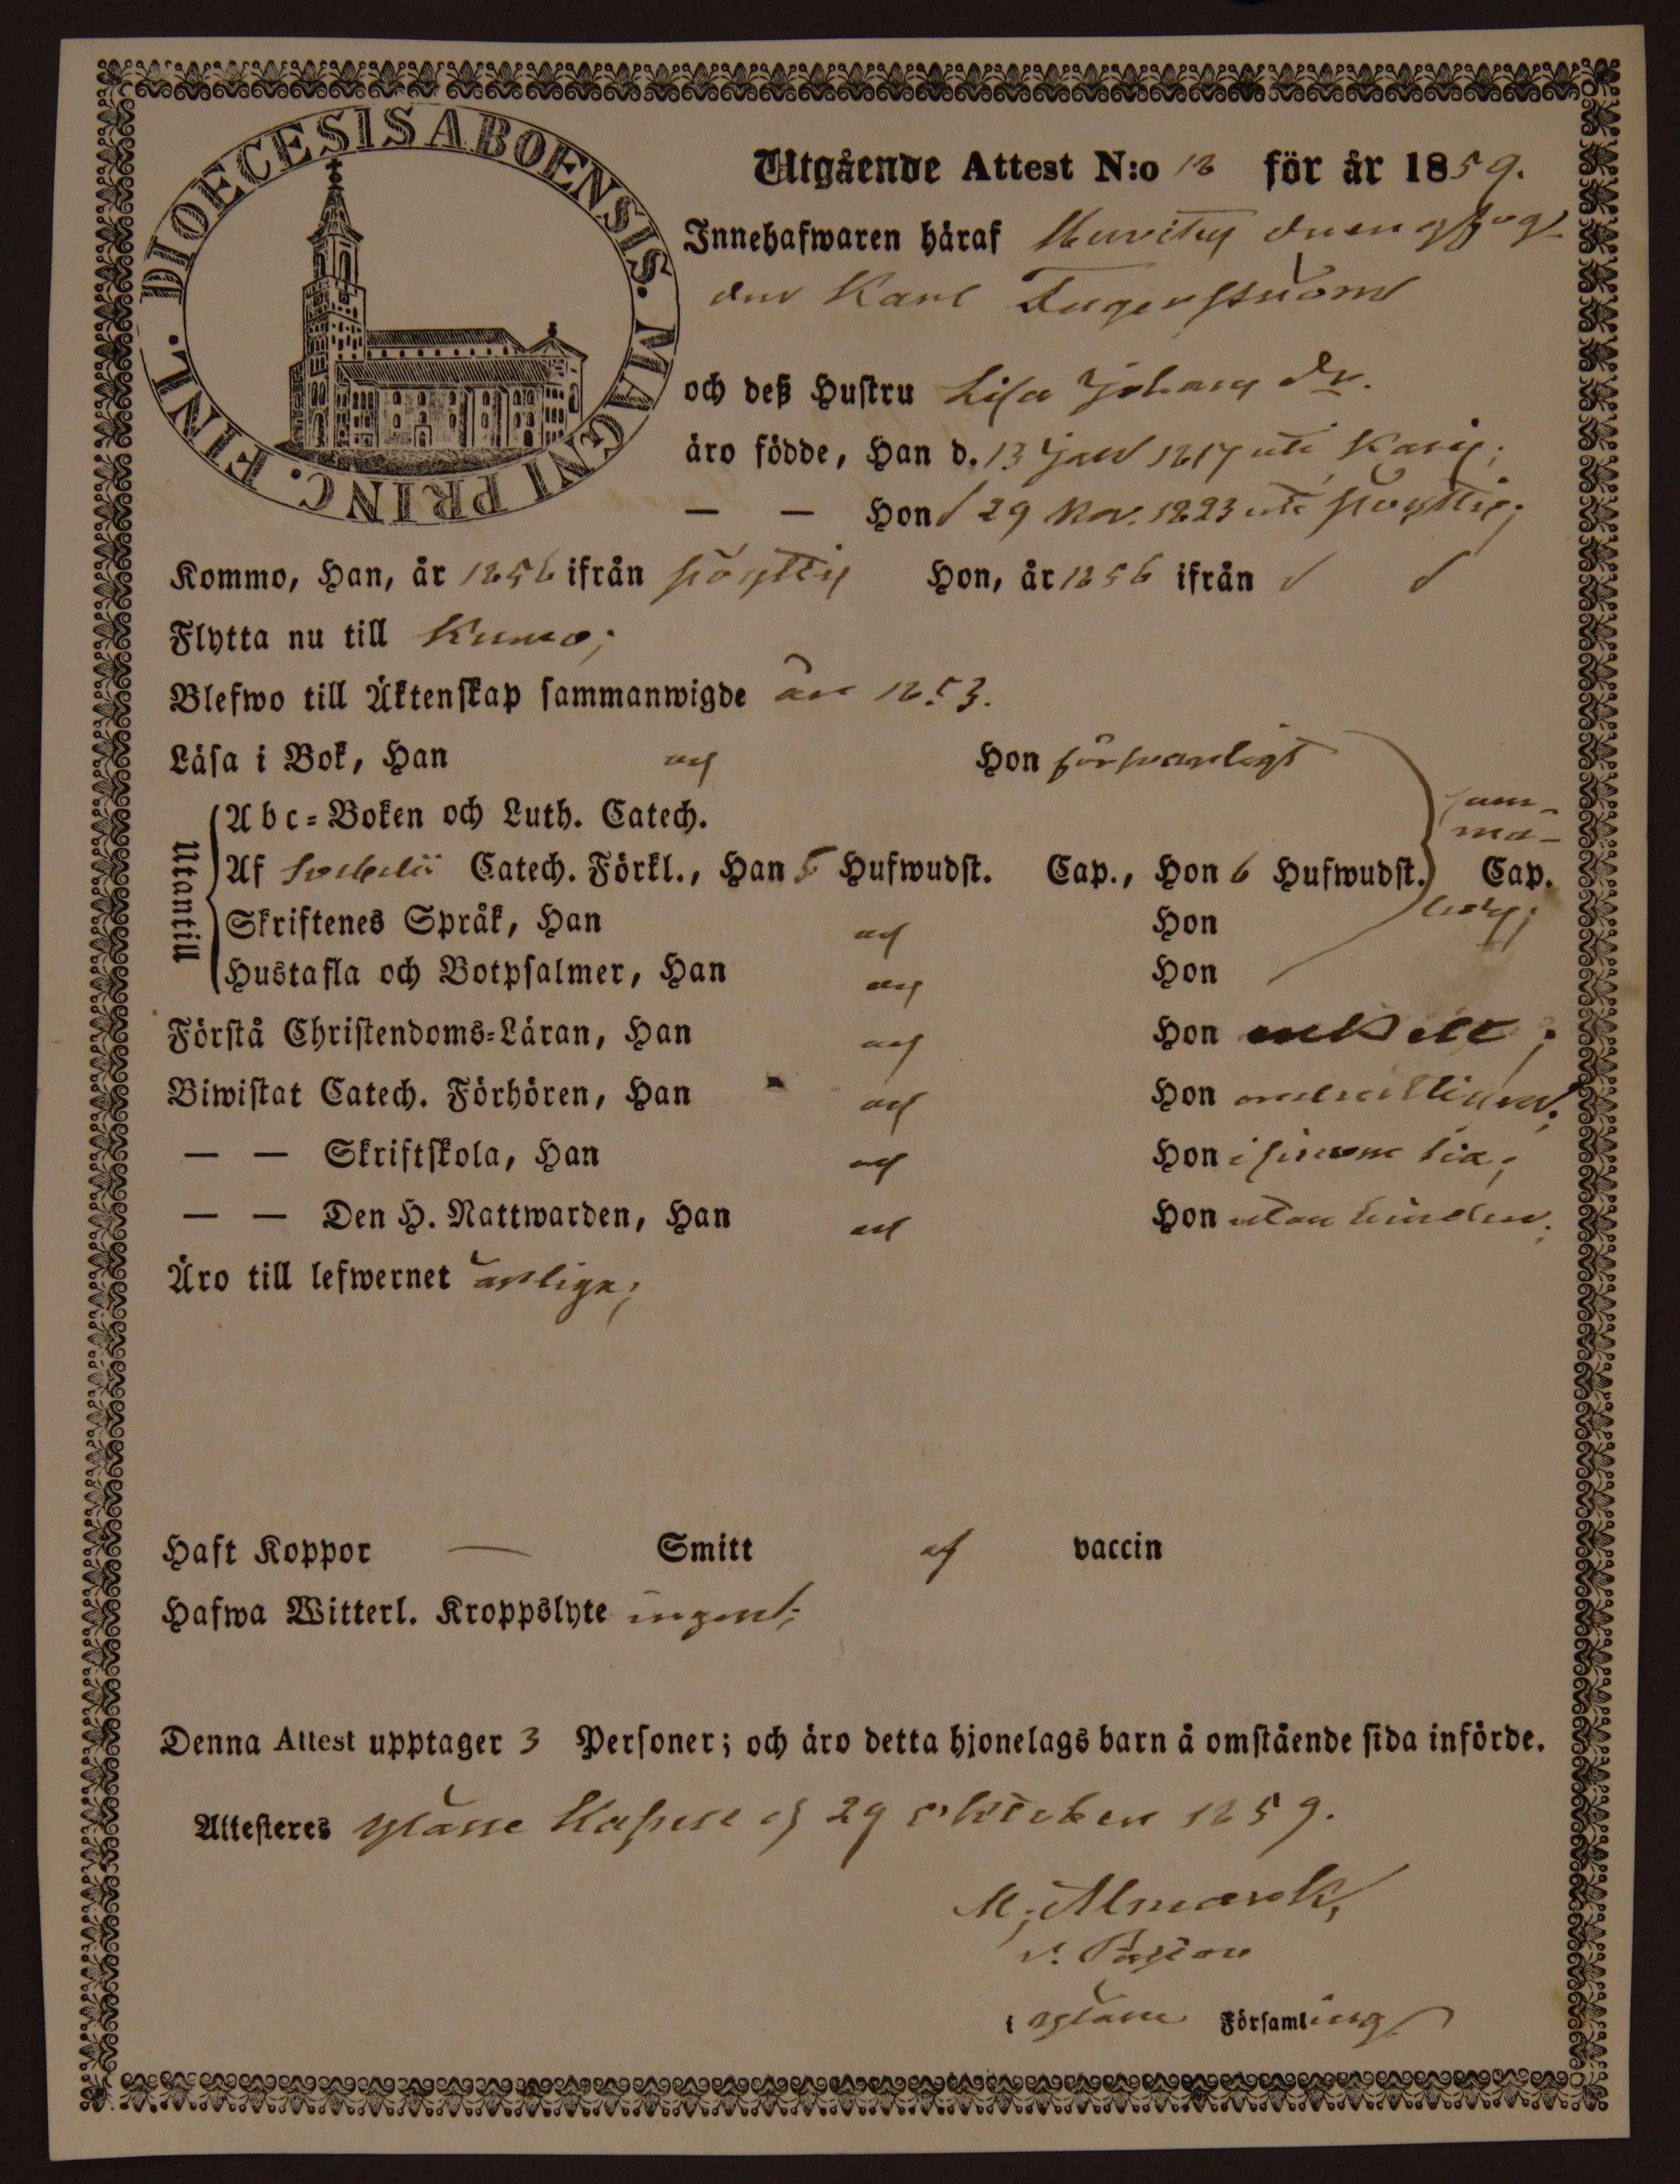 DIOECESIS ABOENSIS. MAGNI PRINC. FINL.
Utgående Attest N:o 18 för år 1859.
Innehafwaren häraf
den Karl Fagerström
och deß Hustru Lisa Johans dr.
äro födde, Han d. 13 Jan 1817 uti Karis;
— — Hon d 29 Nov. 1823 uti Pöyttis;
Kommo, Han, år 1856 ifrån Pöyttis Hon, år 1856 ifrån d d
Flytta nu till Kumo;
Blefwo till Äktenskap sammanwigde år 1853.
Läsa i Bok, Han och Hon försvarligt
Utantill
Abc-Boken och Luth. Catech. sam-
ma-
Af Svebelii Catech. Förkl., Han 5 Hufwudst. Cap., Hon 6 Hufwudst. Cap.
Skriftenes Språk, Han och Hon
Hustafla och Botpsalmer, Han och Hon
Förstå Christendoms-Läran, Han och Hon enkelt;
Biwistat Catech. Förhören, Han och Hon
— — Skriftskola, Han och Hon i sinom tid;
— — Den H. Nattwarden, Han och Hon utan hinder;
Äro till lefwernet ärlige;
Haft Koppor — Smitt af vaccin
Hafwa Witterl. Kroppslyte inget;
Denna Attest upptager 3 Personer; och äro detta hjonelags barn å omstående sida införde.
Attesteres Yläne Kapell d 29 October 1859.
M. Almark,
v. Pastor
i Yläne Församling